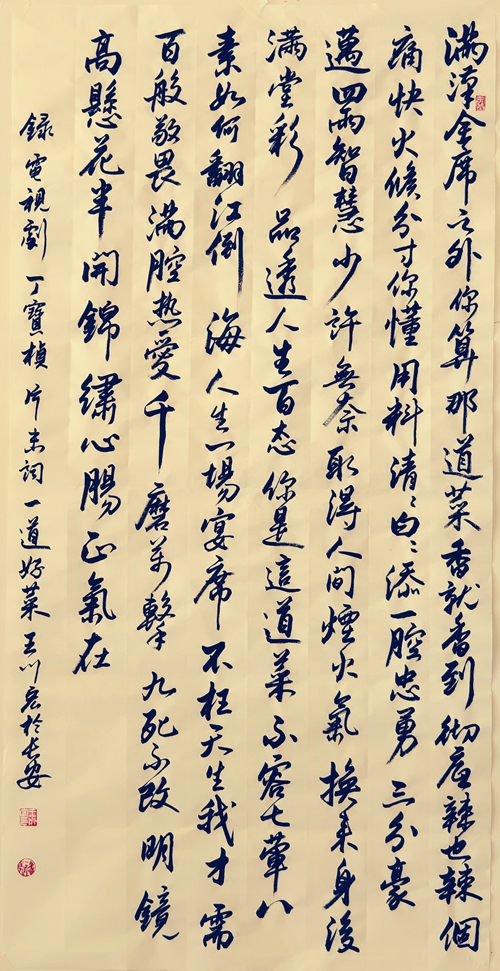 满漢全席之外你算那道菜香就香到彻底辣也辣個
痛快火候分寸你懂用料清清白白添一腔忠勇三分豪
邁四兩智慧少許無奈取得人间煙火氣換来身後
满堂彩品透人生百态你是這道菜不容七葷八
素如何翻江倒海人生一場宴席不枉天生我才需
百般敬畏满腔热愛千磨萬擊九死不改明鏡
高懸花半開錦繡心腸正氣在
録電視劇丁寶楨片末詞一道好菜王川宏於長安